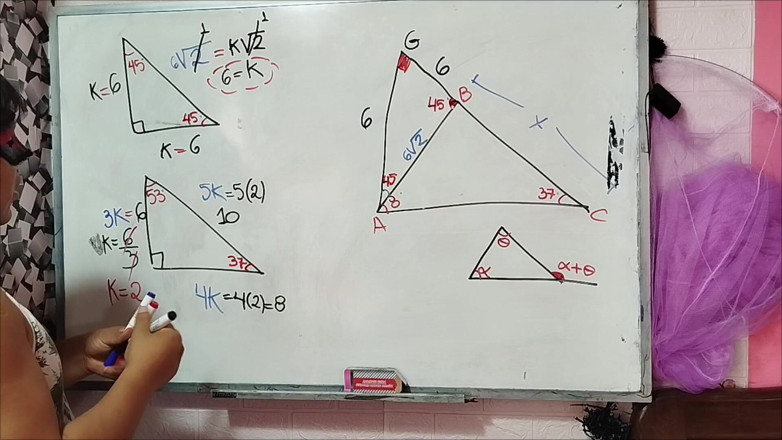 45
K=6
45
K=6
6√2 = K√2
6=K
53
3K=6
K=6/3
K=2
5K=5(2)
10
37
4K=4(2)=8
G
6
B
45
6
6√2
x
45
8
37
A
C
θ
α
α+θ